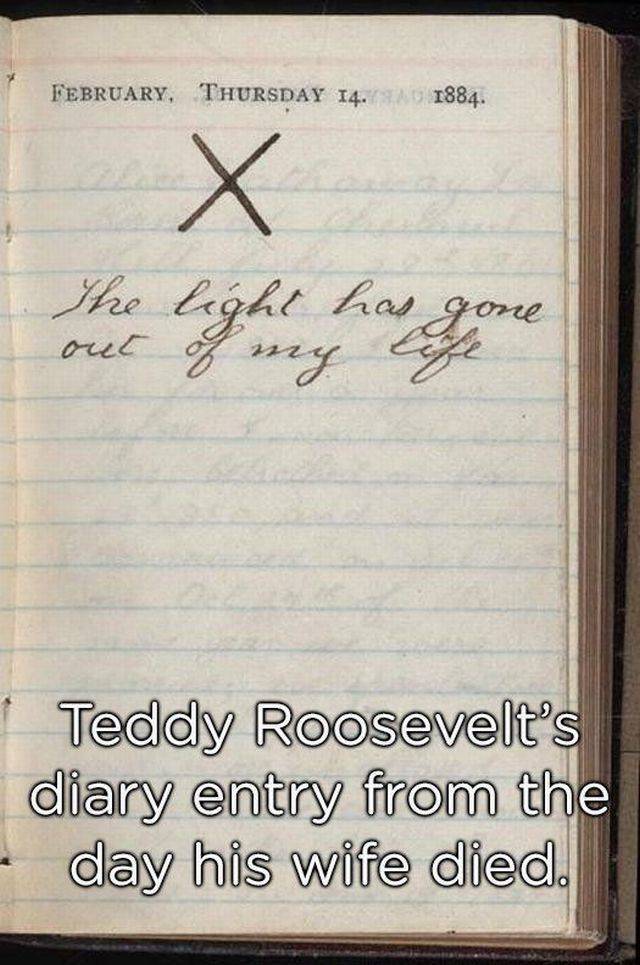 FEBRUARY, THURSDAY 14. 1884.
X
The light has gone
out of my life
Teddy Roosevelt's
diary entry from the
day his wife died.